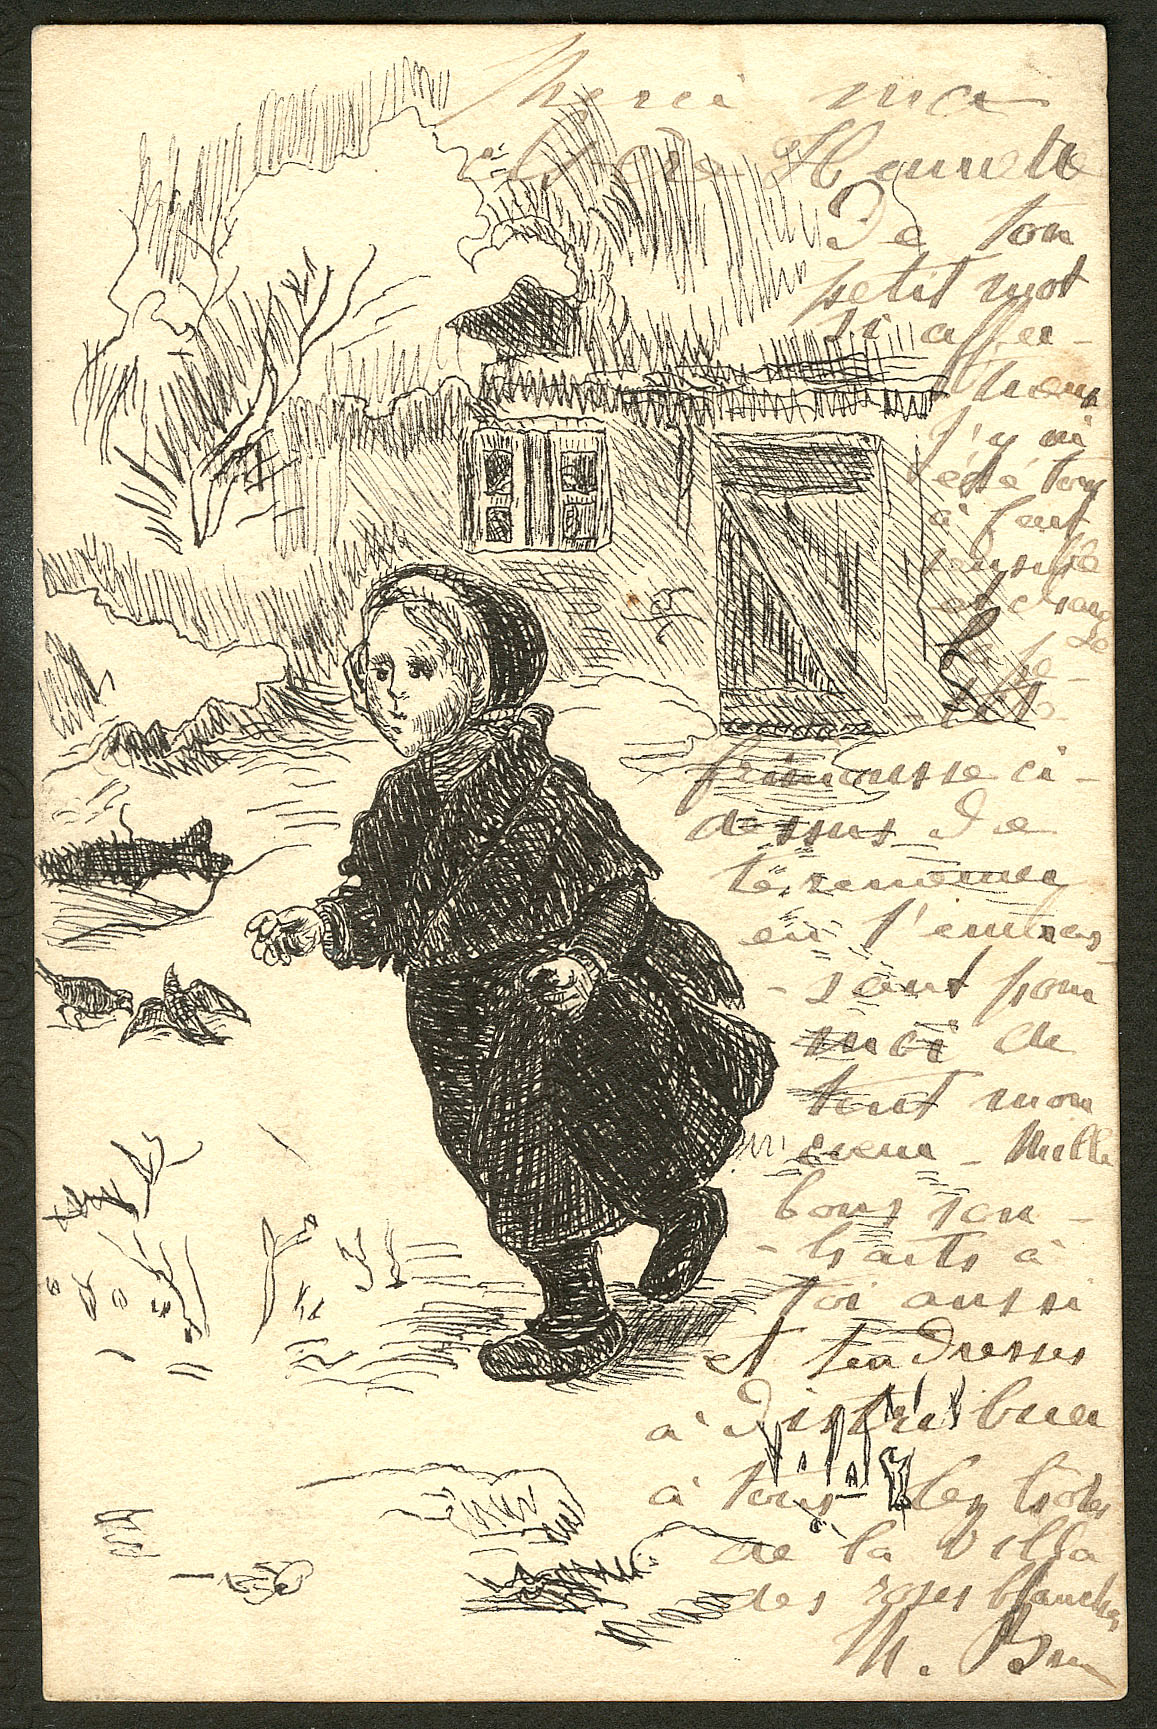 Merci ma
chère Hennette
De ton
petit mot
si affec-
tueux
J'y ai
été tout
à fait
sensible
et charge
la pe-
-tite
frimousse ci-
dessus de
te remercier
en t'embras
-sant pour
moi de
tout mon
cœur - Mille
bons sou-
-haits à
toi aussi
et tendresses
à distribuer
à tous les hôtes
de la villa
des roses blanches